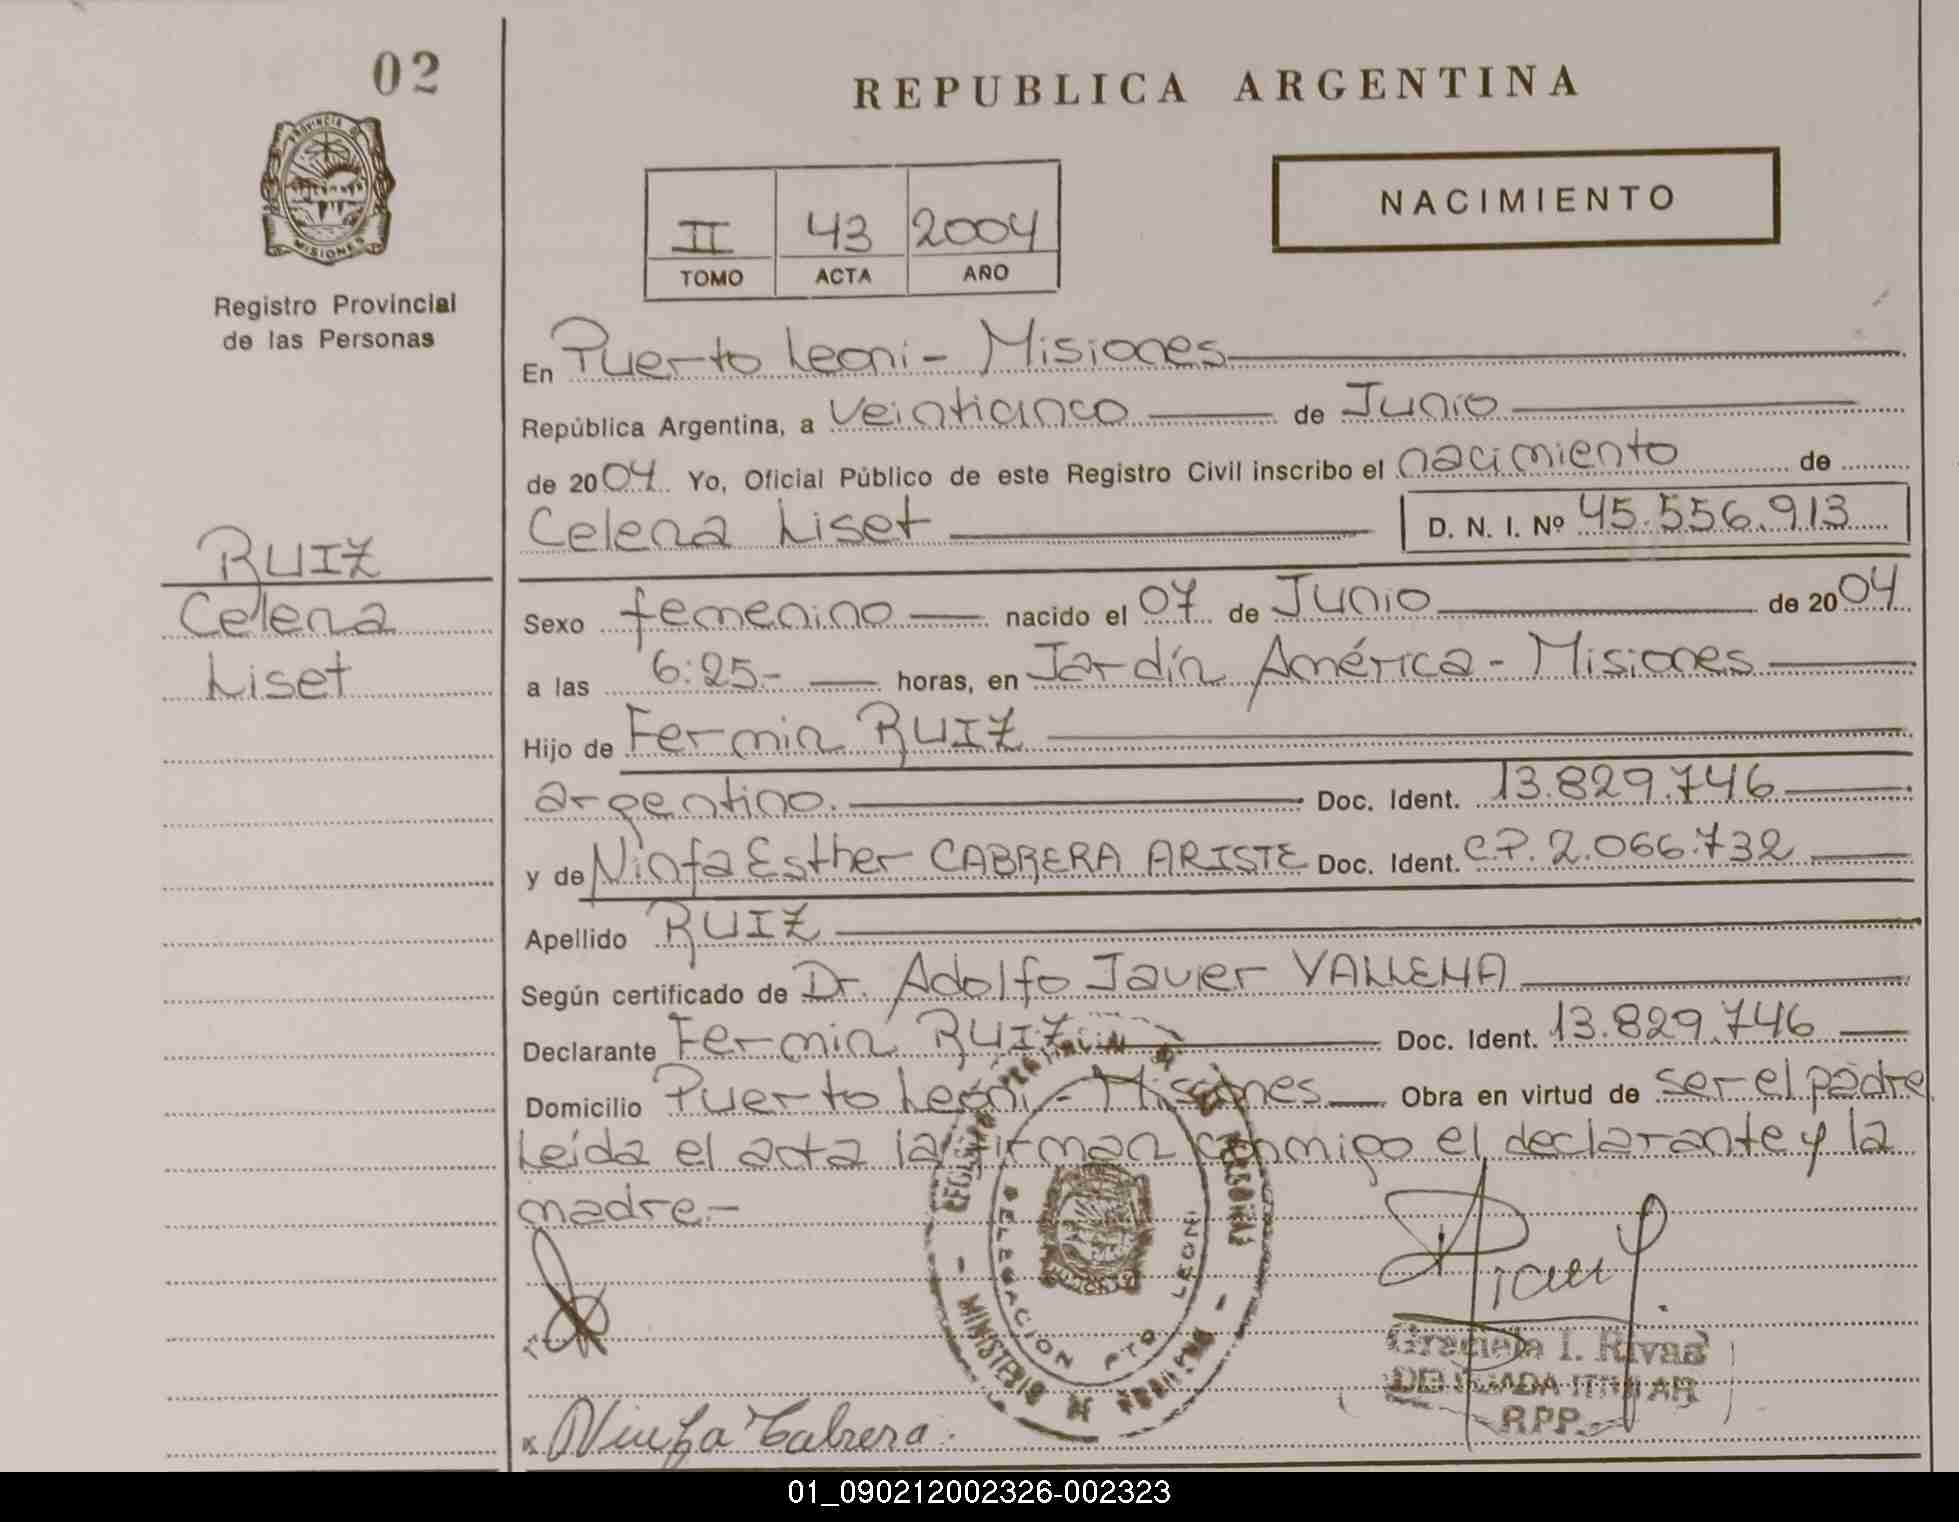 02
REPUBLICA ARGENTINA
PROVINCIA DE
MISIONES
Registro Provincial
de las Personas
NACIMIENTO
II 43 2004
TOMO ACTA AÑO
En Puerto Leoni - Misiones
República Argentina, a veinticinco de Junio
de 2004 Yo, Oficial Público de este Registro Civil inscribo el nacimiento de
Celena Liset D. N. I. Nº 45.556.913
RUIZ
Celena
Liset
Sexo femenino nacido el 07 de Junio de 2004
a las 6:25.- horas, en Jardín América - Misiones
Hijo de Fermin RUIZ
argentino. Doc. Ident. 13.829.746
y de Ninfa Esther CABRERA ARISTE Doc. Ident. C.P. 2.066.732
Apellido RUIZ
Según certificado de Dr. Adolfo Javier
Declarante Fermin RUIZ Doc. Ident. 13.829.746
Domicilio Puerto Leoni - Misiones Obra en virtud de ser el padre
Leída el acta la firman conmigo el declarante y la
madre.-
DELEGACION PTO LEONI
MINISTERIO DE
Graciela I. Rivas
DELEGADA TITULAR
R.P.P.
Ninfa Cabrera.
01_090212002326-002323